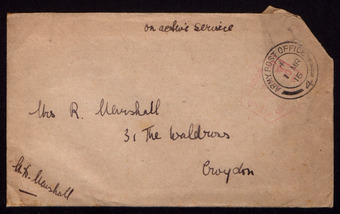 on active service
ARMY POST OFFICE
MR
15
4
Mrs R. Marshall
31 The Waldrons
Croydon
Marshall